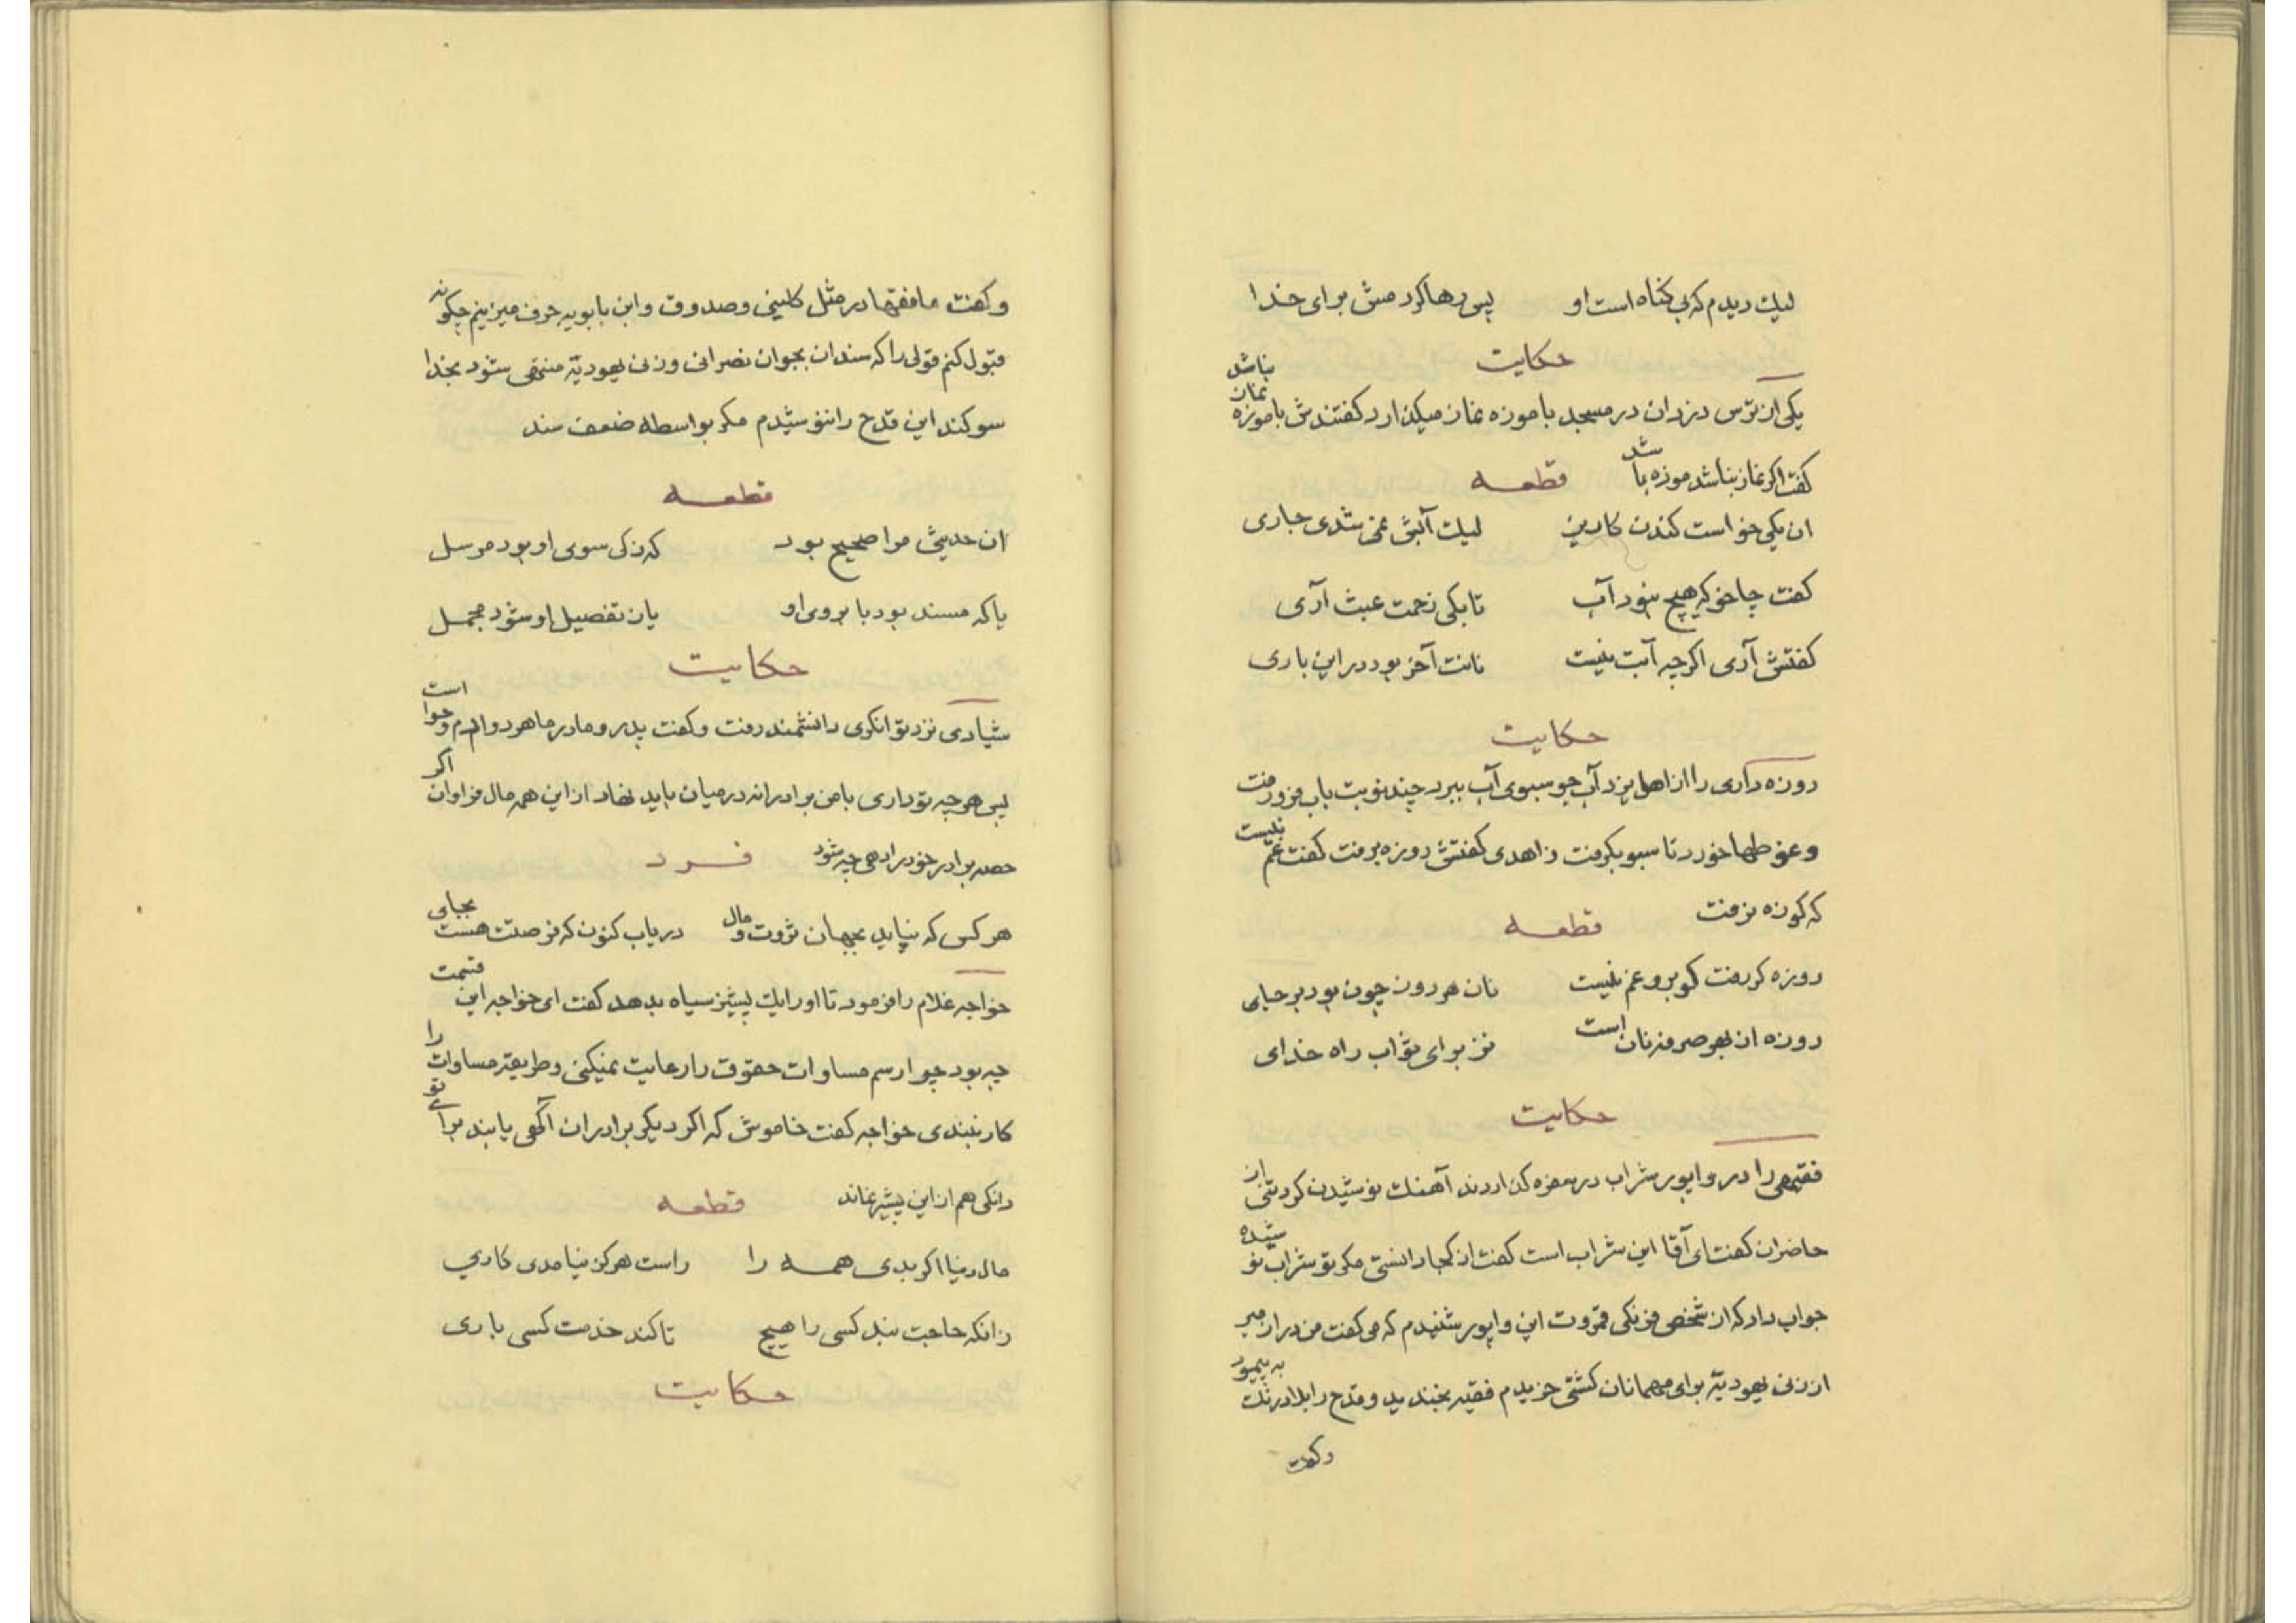 لیك دیدم که بی کناه است او پس رها کردمش برای خدا
حکایت
یکی از ترس دزدان در مسجد با موزه نماز میکذارد کفتندش با موزه نماز نباشد
کفت اکر نماز نباشد موزه باشد قطعه
ان یکی خواست کندن کاریز لیك آبش نمی شدی جاری
کفت چاخو که هیچ نبود آب تا بکی زحمت عبث آری
کفتش آری اکر چه آبت نیست نانت آخر بود در این باری
حکایت
روزه داری را از اهل یزد آب جو سبوی آب ببرد چند نوبت باب فرو رفت
و غوطها خورد تا سبو بکرفت زاهدی کفتش روزه برفت کفت غم نیست
که کوزه نرفت قطعه
روزه کر رفت کو برو غم نیست نان هر دون چون بود بر جای
روزه از بهر صرفه نان است نز برای ثواب راه خدای
حکایت
فقیهی را در واپور شراب در سفره کذاردند آهنك نوشیدن کرد تنی از
حاضران کفت ای آقا این شراب است کفت از کجا دانستی مکر تو شراب نوشیده
جواب داد که از شخص فرنکی قمروت این واپور شنیدم که می کفت من در ازمیر
از زنی یهودیّه برای مهمانان کشتی خریدم فقیه بخندید و قدح را بلادرنك به پیمود
وکفت
وکفت ما فقها در مثل کلینی و صدوق و ابن بابویه حرف میزنیم چکونه
قبول کنم قولی را که سند ان بجوان نصرانی و زنی یهودیّه منتهی شود بخدا
سوکند این قدح را ننوشیدم مکر بواسطه ضعف سند
قطعه
ان حدیثی مرا صحیح بود که زکی سوی او بود مرسل
یا که مسند بود با بروی او یا ز تفصیل او شود مجمل
حکایت
شیادی نزد توانکری دانشمند رفت و کفت پدر و مادر ما هر دو ادم و حوا است
پس هر چه تو داری با من برادرانه در میان باید نهاد از این همه مال فراوان اکر
حصه برادر خود را دهی چه شود فرد
هر کس که نپاید بجهان ثروت و مال دریاب کنون که فرصتت هست بجای
خواجه غلام را فرمود تا او را یك پشیز سیاه بدهد کفت ای خواجه این قسمت
چه بود چرا رسم مساوات حقوق را رعایت نمیکنی و طریقه مساوات را
کار نبندی خواجه کفت خاموش که اکر دیکر برادران آکهی یابند برای تو
دانکی هم از این پشیز نماند قطعه
مال دنیا اکر بدی همه را راست هرکز نیامدی کاری
زانکه حاجت نبد کسی را هیچ تا کند خدمت کسی باری
حکایت